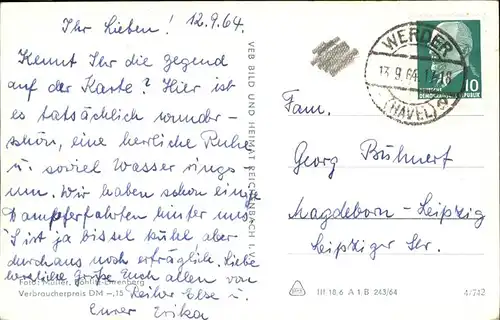 Ihr Lieben! 12.9.64.
Kennt Ihr die Gegend
auf der Karte? Hier ist
es tatsächlich wunder-
schön, eine herrliche Ruhe
u. soviel Wasser rings
um. Wir haben schon einige
Dampferfahrten hinter uns
S'ist ja bissel kühl aber
durchaus noch erträglich. Liebe
herzliche Grüße Euch allen von
Foto: Müller, Böhlitz-Ehrenberg
Verbraucherpreis DM -,15
Else u.
Eurer Erika
VEB BILD UND HEIMAT REICHENBACH I. V.
WERDER
13.9.64
(HAVEL)
DEUTSCHE
DEMOKRATISCHE REPUBLIK
10
Fam.
Georg Bühnert
Magdeborn-Leipzig
Leipziger Str.
III 18.6 A 1. B 243/64
4/742